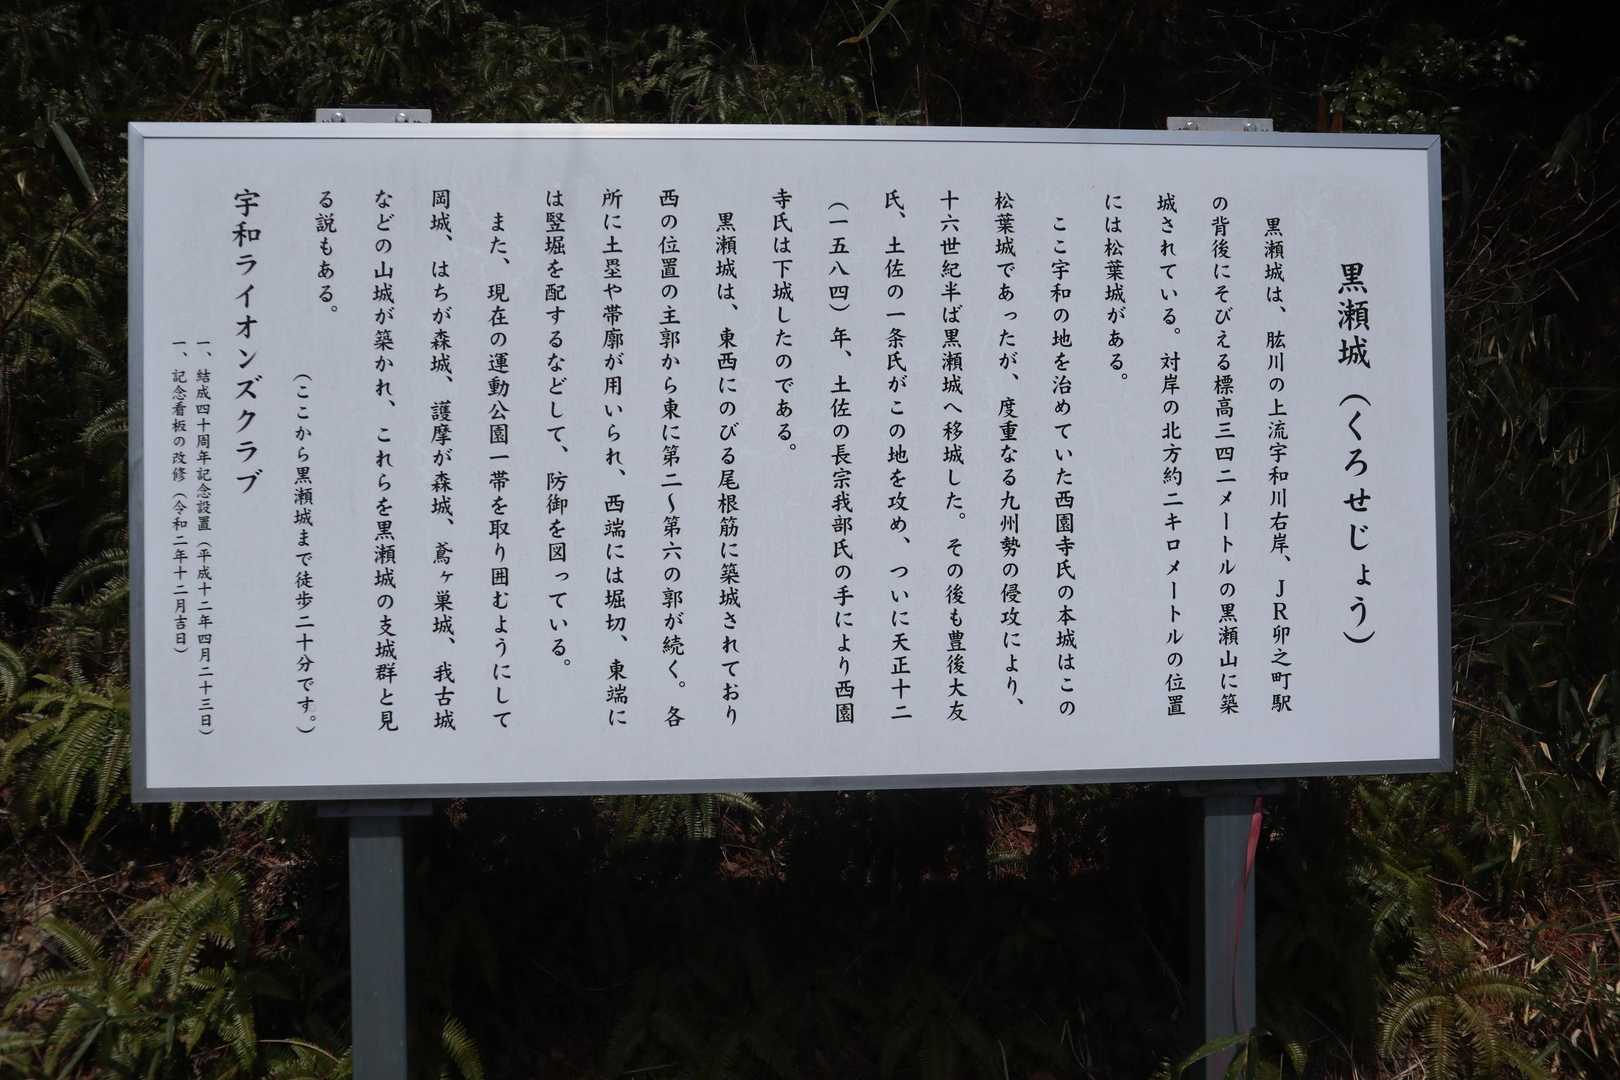 黒瀬城（くろせじょう）
黒瀬城は、肱川の上流宇和川右岸、ＪＲ卯之町駅
の背後にそびえる標高三四二メートルの黒瀬山に築
城されている。対岸の北方約二キロメートルの位置
には松葉城がある。
ここ宇和の地を治めていた西園寺氏の本城はこの
松葉城であったが、度重なる九州勢の侵攻により、
十六世紀半ば黒瀬城へ移城した。その後も豊後大友
氏、土佐の一条氏がこの地を攻め、ついに天正十二
（一五八四）年、土佐の長宗我部氏の手により西園
寺氏は下城したのである。
黒瀬城は、東西にのびる尾根筋に築城されており
西の位置の主郭から東に第二～第六の郭が続く。各
所に土塁や帯廓が用いられ、西端には堀切、東端に
は竪堀を配するなどして、防御を図っている。
また、現在の運動公園一帯を取り囲むようにして
岡城、はちが森城、護摩が森城、鳶ヶ巣城、我古城
などの山城が築かれ、これらを黒瀬城の支城群と見
る説もある。
（ここから黒瀬城まで徒歩二十分です。）
宇和ライオンズクラブ
一、結成四十周年記念設置（平成十二年四月二十三日）
一、記念看板の改修（令和二年十二月吉日）